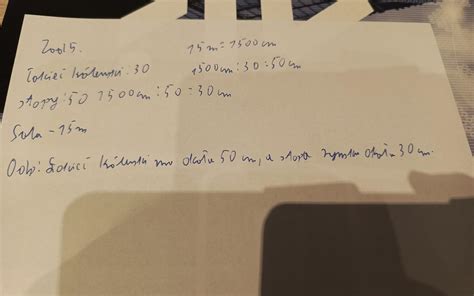 Zad 5.
15m = 1500cm
Łokieć królewski: 30
1500cm : 30 = 50cm
stopy: 50 1500cm : 50 = 30cm
Sala - 15m
Odp: Łokieć królewski ma około 50cm, a stopa rzymska około 30cm.